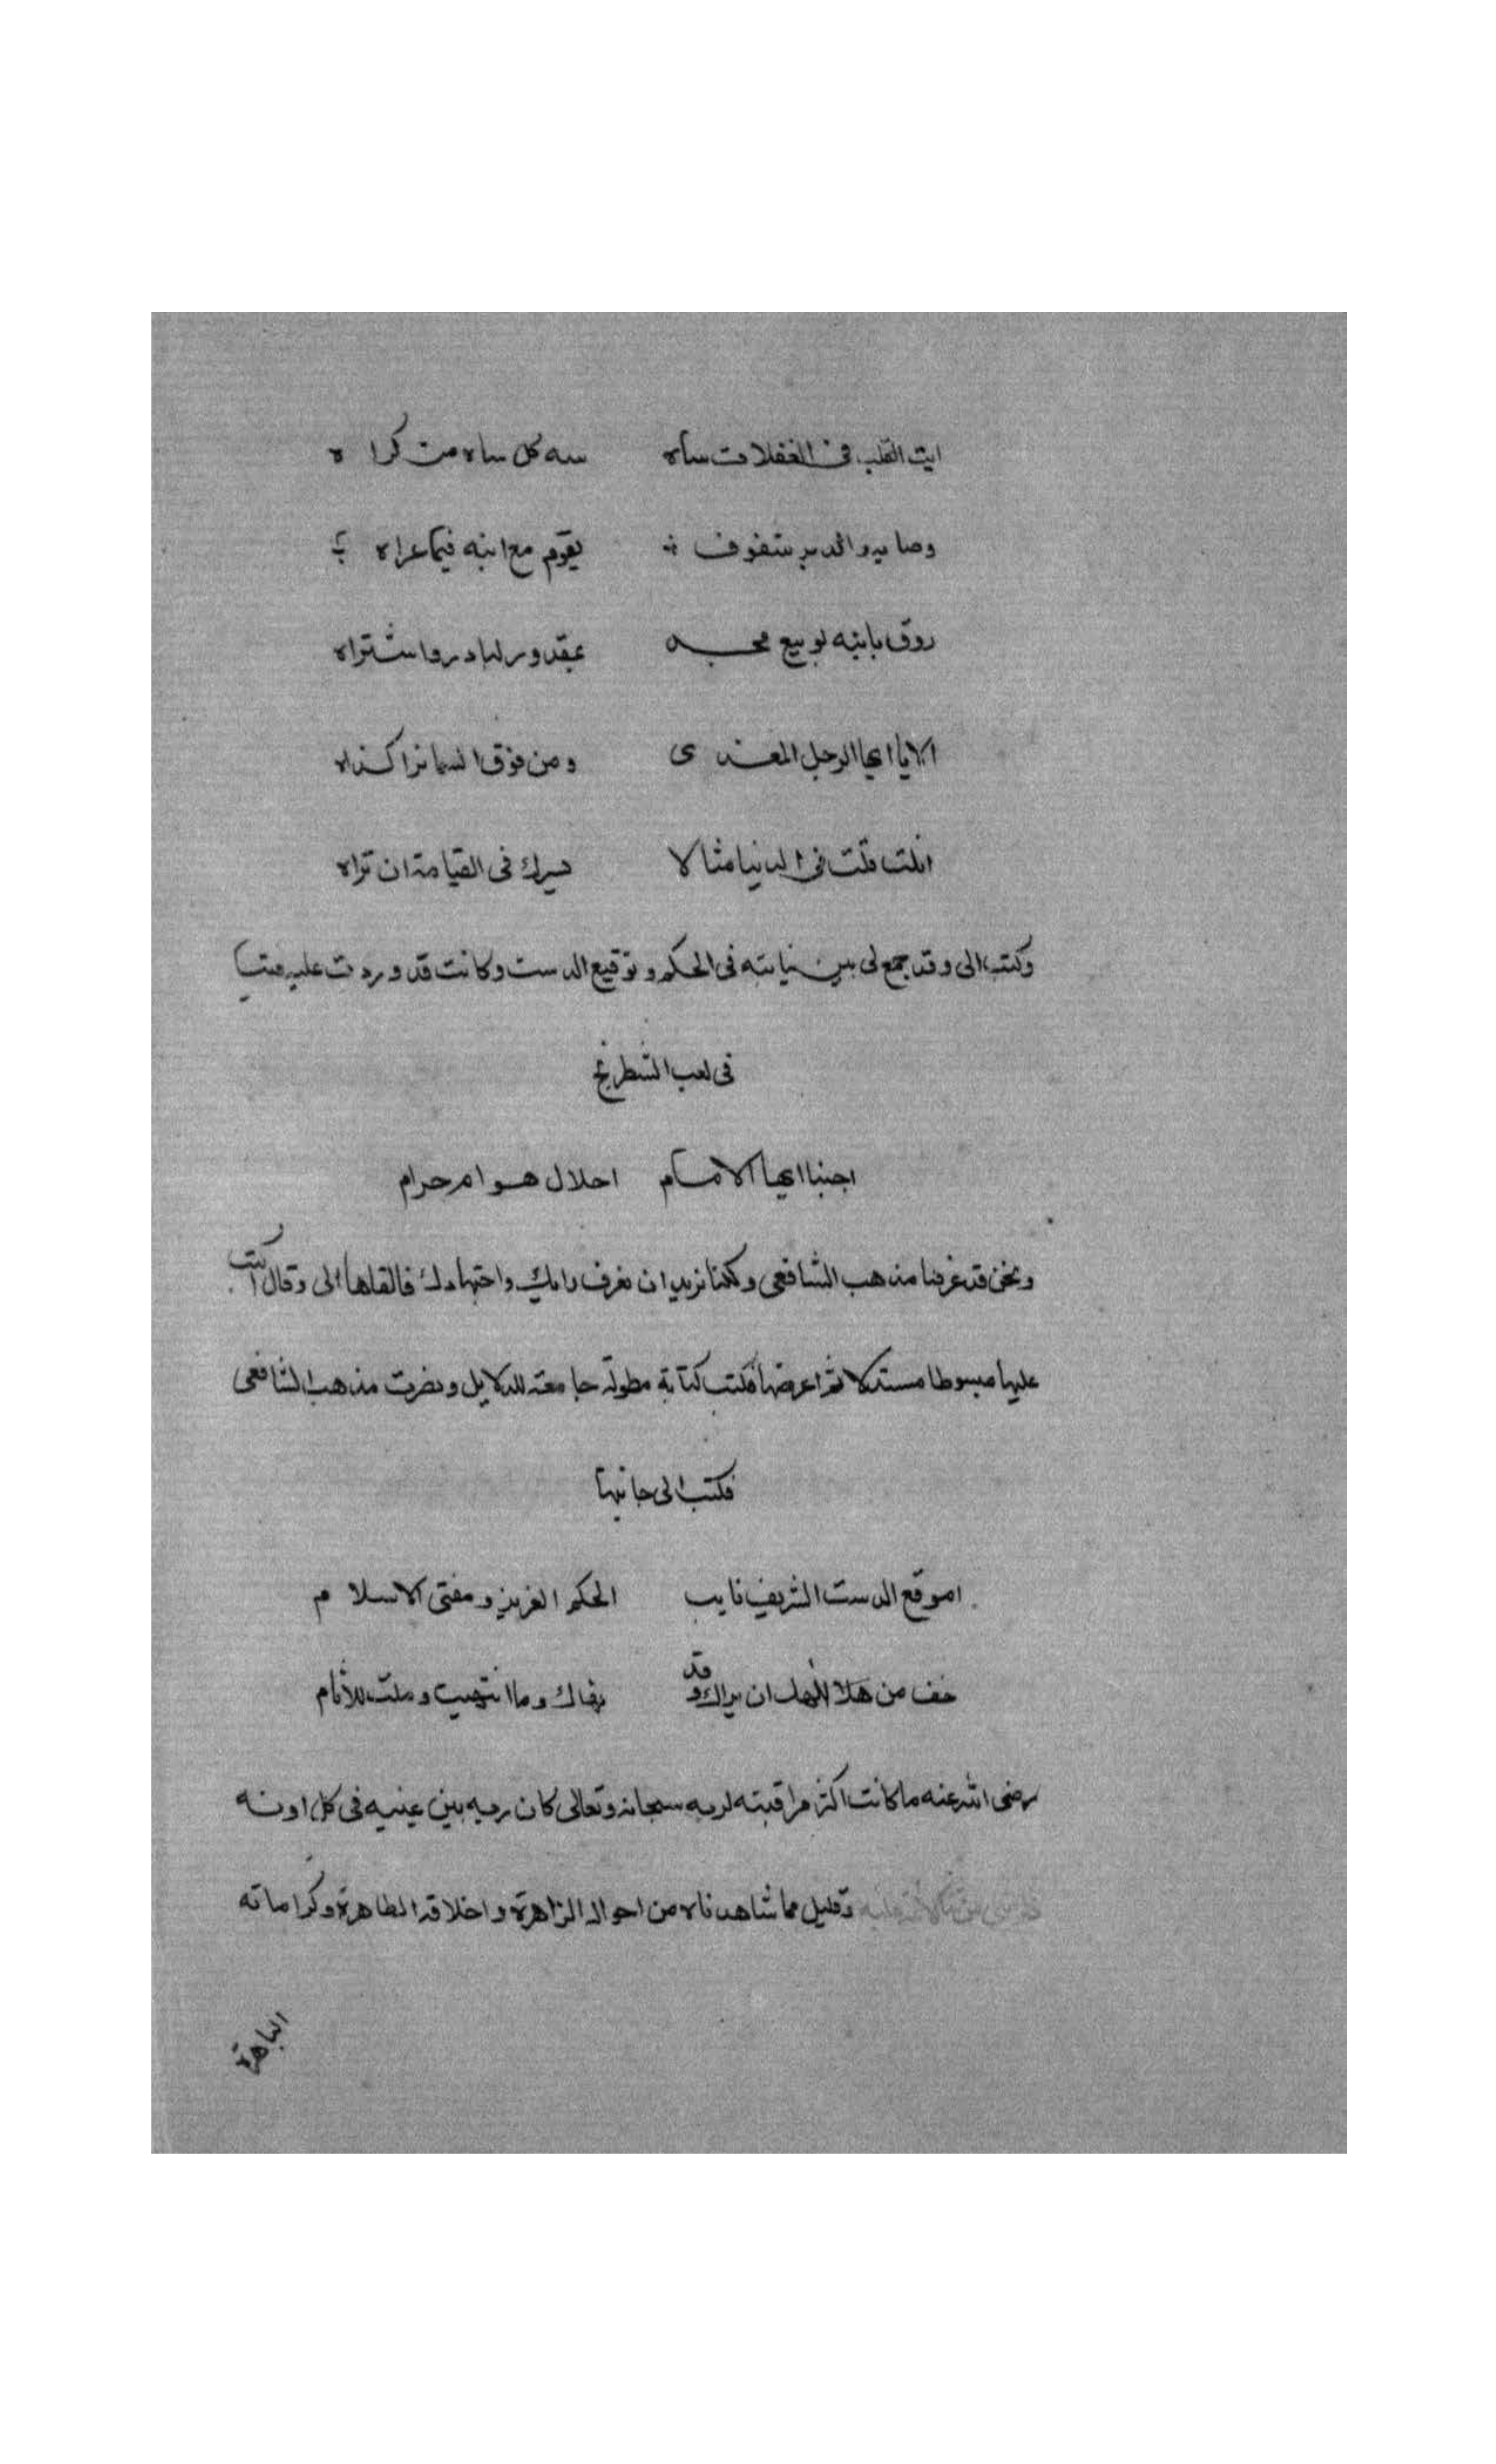 ابيت القلب فى الغفلات ساه سه كل ساه من كراه
وصا يدو الد بر شفوف يقوم مع ابنه فيما عراه
روق بابنه لو بيع محبه بمقدور لبادر واشتراه
الا يا ايها الرجل المغدى ومن فوق السما نزا كذاه
انلت قلت فى الدنيا مثالا يسرك فى القيامة ان تراه
وكتب الى وقد جمع لى بين نيابته فى الحكم و توقيع الدست وكانت قد وردت عليه فتيا
فى لعب الشطرنج
اجبنا ايها الامام احلال هو ام حرام
ونحن قد عرفنا مذهب الشافعى ولكنا نريد ان نعرف رايك واجتهادك فالقاها الى وقال اكتب
عليها مبسوطا مستدلا ثم اعرضها فكتب كتابة مطولة جامعة للدلايل ونصرت مذهب الشافعى
فكتب الى جانبها
اموقع الدست الشريف نايب الحكم العزيز ومفتى الاسلام
خف من ان يراك وقد نهاك وما انتهيت وملت للاثام
رضى الله عنه ما كانت اكثر مراقبته لربه سبحانه وتعالى كان ربه بين عينيه فى كل اونه
وقليل مما شاهدناه من احواله الزاهرة واخلاقه الطاهرة وكراماته
الباهرة